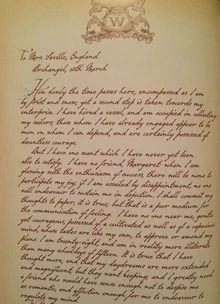 W
To Mrs. Saville, England.
Archangel, 28th March
How slowly the time passes here, encompassed as I am
by frost and snow; yet a second step is taken towards my
enterprise. I have hired a vessel, and am occupied in collecting
my sailors; those whom I have already engaged appear to be
men on whom I can depend, and are certainly possessed of
dauntless courage.
But I have one want which I have never yet been
able to satisfy. I have no friend, Margaret: when I am
glowing with the enthusiasm of success, there will be none to
participate my joy; if I am assailed by disappointment, no one
will endeavour to sustain me in dejection. I shall commit my
thoughts to paper, it is true; but that is a poor medium for
the communication of feeling. I have no one near me, gentle
yet courageous, possessed of a cultivated as well as of a capacious
mind, whose tastes are like my own, to approve or amend my
plans. I am twenty-eight, and am in reality more illiterate
than many schoolboys of fifteen. It is true that I have
thought more, and that my daydreams are more extended
and magnificent; but they want keeping; and I greatly need
a friend who would have sense enough not to despise me
as romantic, and affection enough for me to endeavour to
regulate my mind.